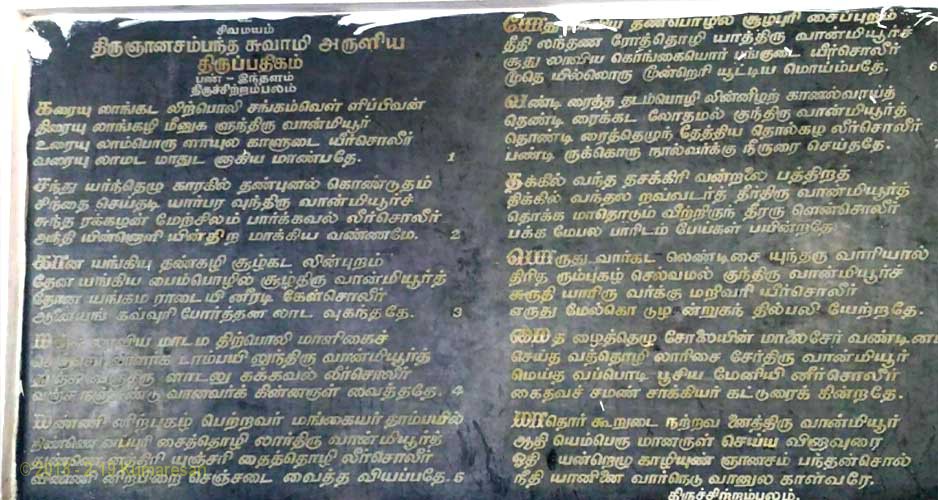 சிவமயம்
திருஞானசம்பந்த சுவாமி அருளிய
திருப்பதிகம்
பண் - இந்தளம்
திருச்சிற்றம்பலம்
கரையு லாங்கட லிற்பொலி சங்கம்வெள் ளிப்பிவன்
திரையு லாங்கழி மீனுக ளுந்திரு வான்மியூர்
உரையு லாம்பொரு ளாயுல காளுடை யீர்சொலீர்
வரையு லாமட மாதுட னாகிய மாண்பதே. 1
சந்து யர்ந்தெழு காரகில் தண்புனல் கொண்டுதம்
சிந்தை செய்தடி யார்பர வுந்திரு வான்மியூர்
சுந்த ரக்கழன் மேற்சிலம் பார்க்கவல் லீர்சொலீர்
அந்தி யின்னொளி யின்நிற மாக்கிய வண்ணமே. 2
கான யங்கிய தண்கழி சூழ்கட லின்புறம்
தேன யங்கிய பைம்பொழில் சூழ்திரு வான்மியூர்த்
தோன யங்கம ராடையி னீரடி கேள்சொலீர்
ஆனையங் கவ்வுரி போர்த்தன லாட வுகந்ததே. 3
மாடம திற்பொலி மாளிகைச்
டாம்பயி லுந்திரு வான்மியூர்த்
னாடலு கக்கவல் லீர்சொலீர்
வானவர்க் கின்னருள் வைத்ததே. 4
நிற்புகழ் பெற்றவர் மங்கையர் தாம்பயில்
திண்ணெ னப்புரி சைத்தொழி லார்திரு வான்மியூர்த்
யுஞ்சரி தைத்தொழி லீர்சொலீர்
விண்ணி னிற்பிறை செஞ்சடை வைத்த வியப்பதே. 5
தண்பொழில் சூழ்புரி சைப்புறம்
நீதி லந்தண ரோத்தொழி யாத்திரு வான்மியூர்ச்
சூது லாவிய கொங்கையொர் பங்குடை யீர்சொலீர்
மூதெ யில்லொரு மூன்றெரி யூட்டிய மொய்ம்பதே. 6
வண்டி ரைத்த தடம்பொழி லின்னிழற் கானல்வாய்த்
தெண்டி ரைக்கட லோதமல் குந்திரு வான்மியூர்த்
தொண்டி ரைத்தெழுந் தேத்திய தொல்கழ லீர்சொலீர்
பண்டி ருக்கொரு நால்வர்க்கு நீருரை செய்ததே.
தக்கில் வந்த தசக்கிரி வன்றலை பத்திறத்
திக்கில் வந்தல றவ்வடர்த் தீர்திரு வான்மியூர்த்
தொக்க மாதொடும் வீற்றிருந் தீரரு ளென்சொலீர்
பக்க மேபல பாரிடம் பேய்கள் பயின்றதே
பொருது வார்கட லெண்டிசை யுந்தரு வாரியால்
திரித ரும்புகழ் செல்வமல் குந்திரு வான்மியூர்ச்
சுருதி யாரிரு வர்க்கு மறிவரி யீர்சொலீர்
எருது மேல்கொ டுழ னறுகந் தில்பலி யேற்றதே.
மைத ழைத்தெழு சோலையின் மாலைசேர் வண்டினம்
செய்த வத்தொழி லாரிசை சேர்திரு வான்மியூர்
மெய்த வப்பொடி பூசிய மேனியி னீர்சொலீர்
கைதவச் சமண் சாக்கியர் கட்டுரைக் கின்றதே.
மாதொர் கூறுடை நற்றவ னைத்திரு வான்மியூர்
ஆதி யெம்பெரு மானருள் செய்ய வினாவுரை
ஓதி யன்றெழு காழியுண் ஞானசம் பந்தன்சொல்
நீதி யானினை வார்நெடு வானுல காள்வரே.
திருச்சிற்றம்பலம்.